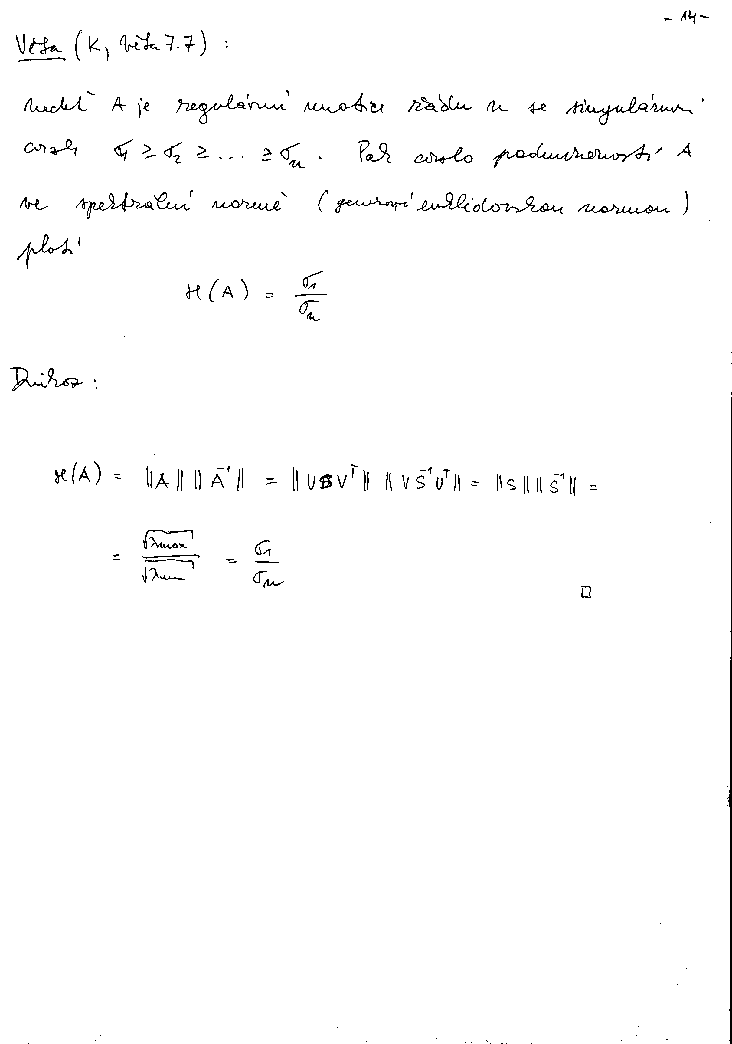 - 14 -
Věta (K, věta 7.7) :
nechť A je regulární matice řádu n se singulárními
čísly σ₁ ≥ σ₂ ≥ ... ≥ σₙ. Pak číslo podmíněnosti A
ve spektrální normě (generované euklidovskou normou)
platí
ϰ(A) = σ₁/σₙ
Důkaz :
ϰ(A) = ‖A‖ ‖A⁻¹‖ = ‖USVᵀ‖ ‖VS⁻¹Uᵀ‖ = ‖S‖ ‖S⁻¹‖ =
= √λmax/√λmin = σ₁/σₙ
□